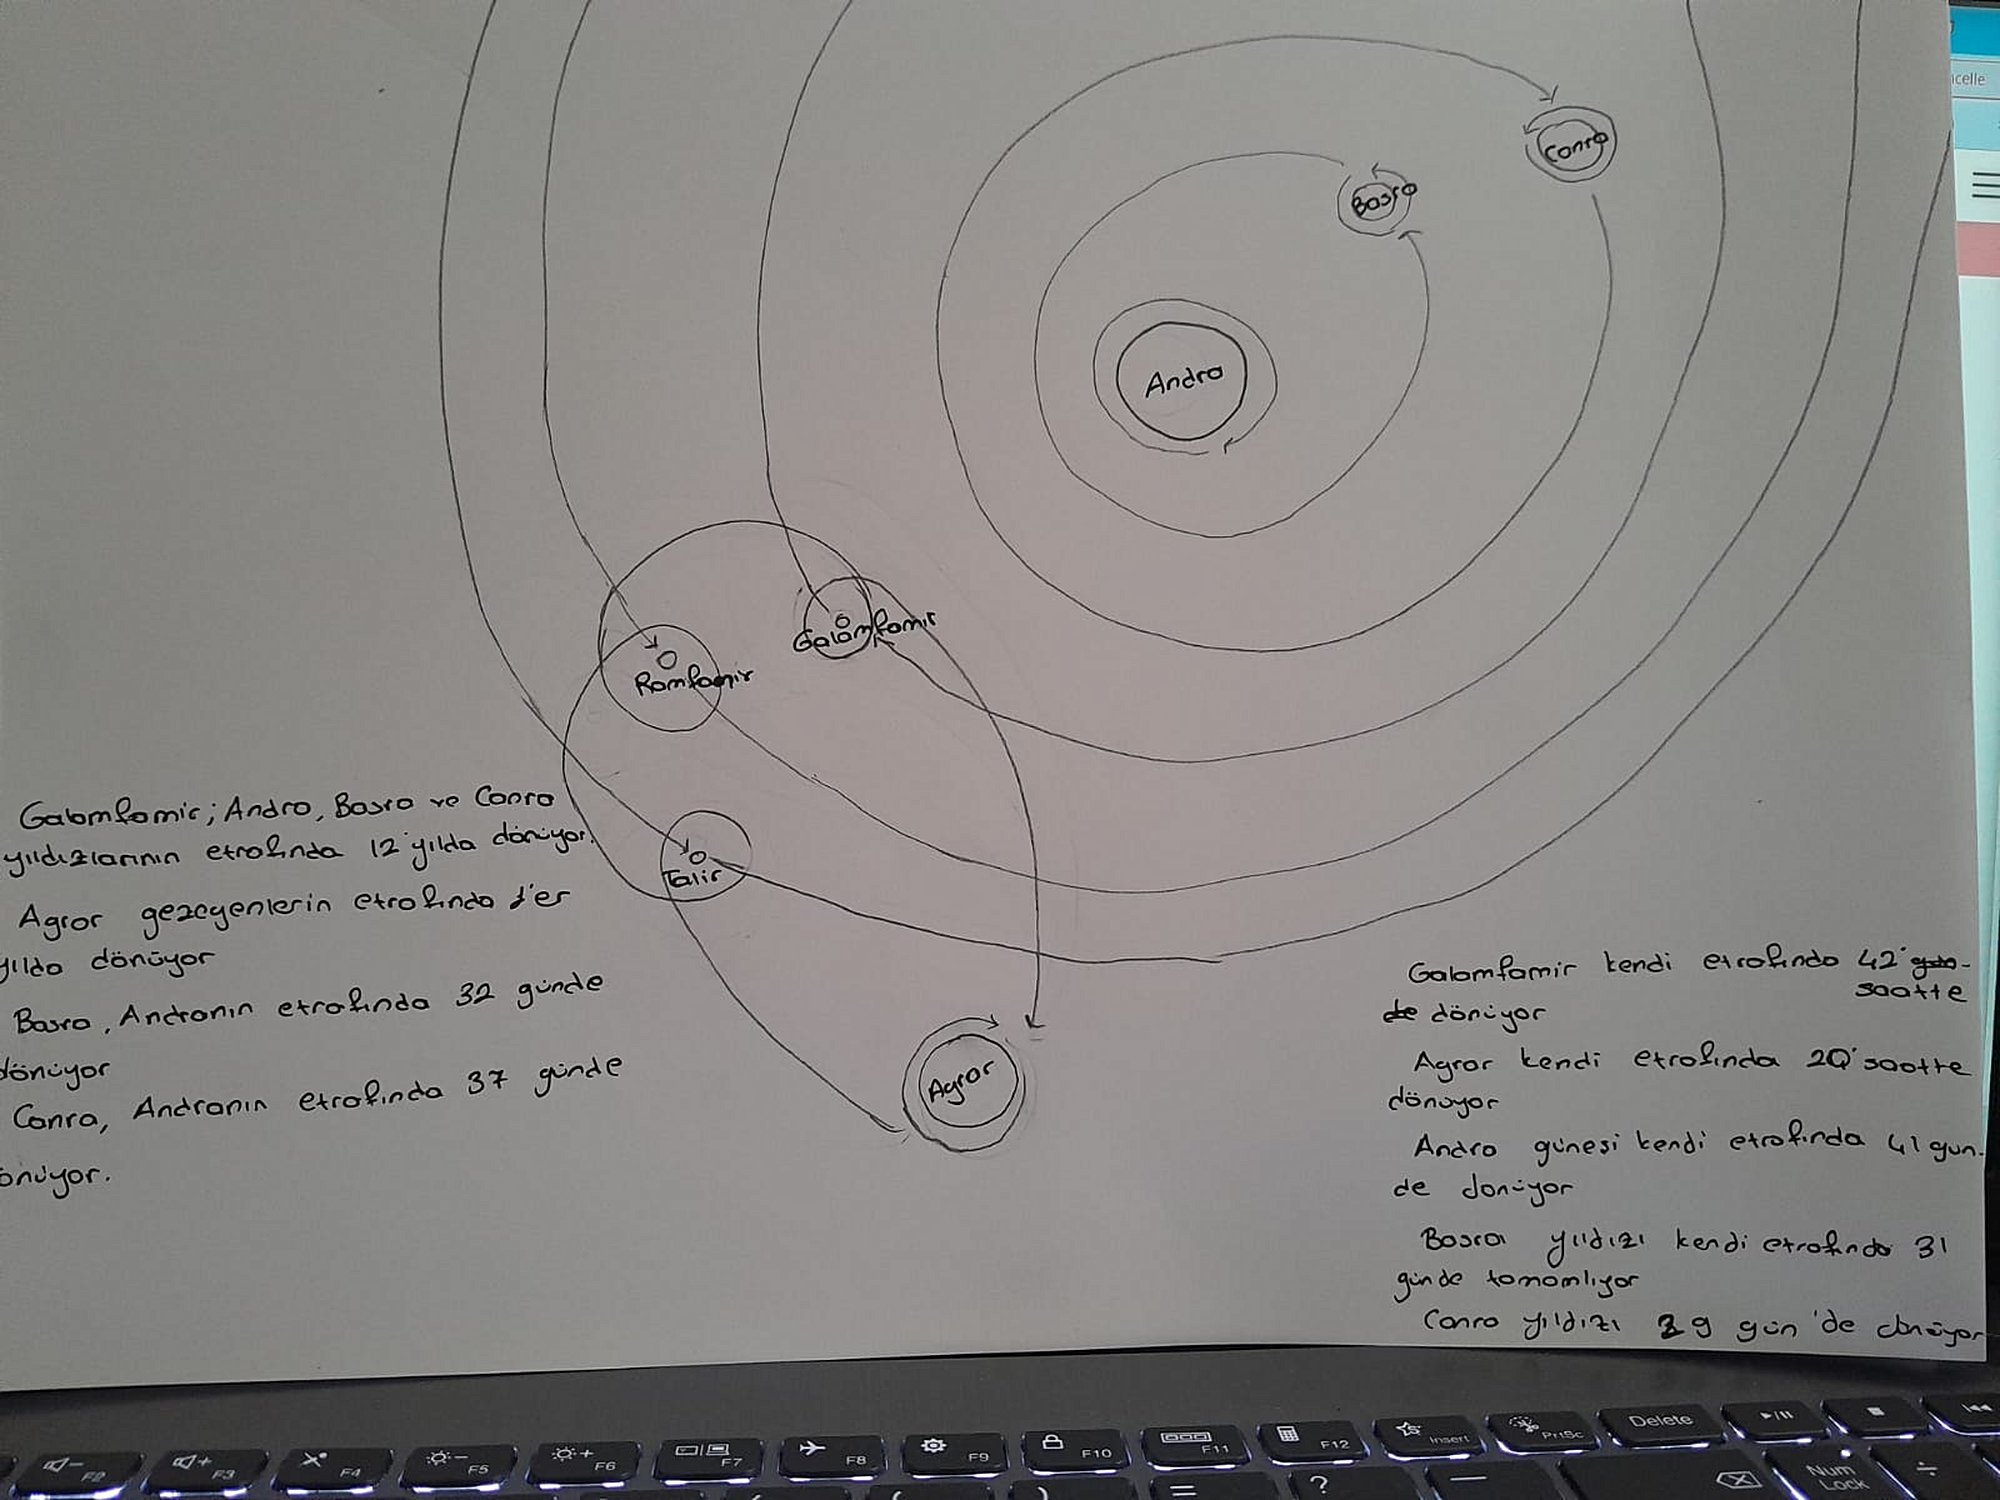 Conra
Basra
Andra
Galamfamir
Ramfamir
Talir
Agror
Galamfamir; Andra, Basra ve Conra
yıldızlarının etrafında 12 yılda dönüyor.
Agror gezegenlerin etrafında 1'er
yılda dönüyor
Basra, Andranın etrafında 32 günde
dönüyor
Conra, Andranın etrafında 37 günde
önüyor.
Galamfamir kendi etrafında 42
saatte
dönüyor
Agror kendi etrafında 20 saatte
dönüyor
Andra güneşi kendi etrafında 41 gün-
de dönüyor
Basra yıldızı kendi etrafında 31
günde tamamlıyor
Conra yıldızı 29 gün'de dönüyor
icelle
F2
F3
F4
F5
F6
F7
F8
F9
F10
F11
F12
Insert
PrtSc
Delete
Num
Lock
=
?